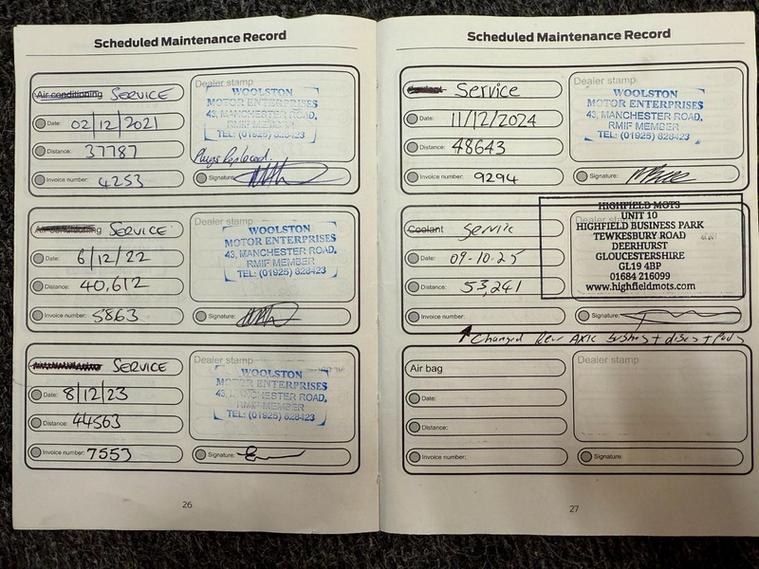 Scheduled Maintenance Record
Air conditioning SERVICE
Date: 02/12/2021
Distance: 37787
Invoice number: 4253
Dealer stamp
WOOLSTON
MOTOR ENTERPRISES
43, MANCHESTER ROAD,
RMIF MEMBER
TEL: (01925) 828423
Plugs Replaced.
Signature:
Air conditioning SERVICE
Date: 6/12/22
Distance: 40,612
Invoice number: 5863
Dealer stamp
WOOLSTON
MOTOR ENTERPRISES
43, MANCHESTER ROAD,
RMIF MEMBER
TEL: (01925) 828423
Signature:
SERVICE
Date: 8/12/23
Distance: 44563
Invoice number: 7553
Dealer stamp
WOOLSTON
MOTOR ENTERPRISES
43, MANCHESTER ROAD,
RMIF MEMBER
TEL: (01925) 828423
Signature:
26
Scheduled Maintenance Record
Coolant Service
Date: 11/12/2024
Distance: 48643
Invoice number: 9294
Dealer stamp
WOOLSTON
MOTOR ENTERPRISES
43, MANCHESTER ROAD,
RMIF MEMBER
TEL: (01925) 828423
Signature:
Coolant Servic
Date: 09-10-25
Distance: 53,241
Invoice number:
Dealer stamp
HIGHFIELD MOTS
UNIT 10
HIGHFIELD BUSINESS PARK
TEWKESBURY ROAD
DEERHURST
GLOUCESTERSHIRE
GL19 4BP
01684 216099
www.highfieldmots.com
Signature:
Changed Rear Axle bushes + discs + Pads
Air bag
Date:
Distance:
Invoice number:
Dealer stamp
Signature:
27